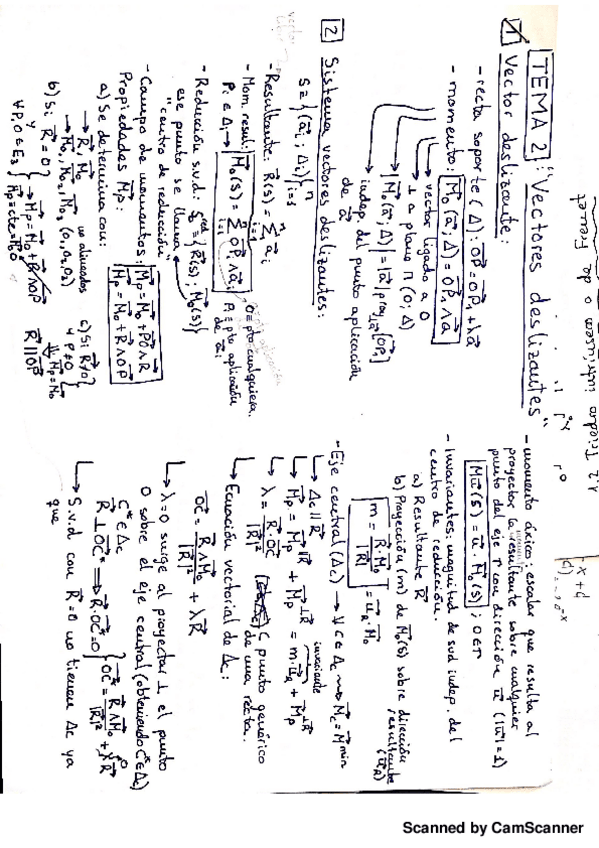 TEMA 2: "Vectores deslizantes"
1 Vector deslizante:
- recta soporte (Δ): OP⃗ = OP₁⃗ + λa⃗
- momento: M₀⃗(a⃗;Δ) = OP₁⃗ ∧ a⃗
→ vector ligado a O
→ ⊥ a plano Π(O;Δ)
→ |M₀⃗(a⃗;Δ)| = |a⃗| |proy⊥a⃗ [OP₁⃗]|
→ indep. del punto aplicación
de a⃗
2 Sistema vectores deslizantes:
S ≡ {(a⃗ᵢ; Δᵢ)}ⁿᵢ₌₁
- Resultante: R⃗(S) = Σⁿᵢ₌₁ a⃗ᵢ
O ≡ pto cualquiera.
- Mom. result: M₀⃗(S) = Σⁿᵢ₌₁ OPᵢ⃗ ∧ a⃗ᵢ
Pᵢ ∈ Δᵢ
Pᵢ ≡ pto aplicación
de a⃗ᵢ
- Reducción s.v.d: {R⃗(S); M₀⃗(S)}
ese punto se llama
"centro de reducción"
- Campo de momentos: Mp⃗ = M₀⃗ + PO⃗ ∧ R⃗
Mp⃗ = M₀⃗ + R⃗ ∧ OP⃗
Propiedades Mp⃗:
a) Se determina con:
→ R⃗, M₀⃗
→ M₀⃗, M₀₁⃗, M₀₂⃗ (O, O₁, O₂) no alineados
b) Si R⃗ = 0
∀P, O ∈ E₃ } → Mp⃗ = M₀⃗ + R⃗ ∧ OP⃗
Mp⃗ = cte = M₀⃗
c) Si R⃗ ≠ 0
y P ≠ O } Mp⃗ = M₀⃗
R⃗ ∥ OP⃗
- momento áxico: escalar que resulta al
proyectar la resultante sobre cualquier
punto del eje r con dirección u⃗ (|u⃗| = 1)
Mu⃗(S) = u⃗ · M₀⃗(S) ; O ∈ r
- Invariantes: magnitud de svd indep. del
centro de reducción.
a) Resultante R⃗
b) Proyección (m) de M₀⃗(S) sobre dirección
resultante (u⃗R)
m = R⃗·M₀⃗ / |R⃗| = u⃗R · M₀⃗
- Eje central (Δc) → ∀ C ∈ Δc → Mc⃗ = M⃗min
→ Δc ∥ R⃗
invariante
→ Mp⃗ = Mp⃗∥R⃗ + Mp⃗⊥R⃗ = m·u⃗R + Mp⃗⊥R⃗
→ λ = R⃗·OC⃗ / |R⃗|² C punto genérico
de una recta.
→ Ecuación vectorial de Δc:
OC⃗ = R⃗ ∧ M₀⃗ / |R⃗|² + λR⃗
→ λ = 0 surge al proyectar ⊥ el punto
O sobre el eje central (obteniendo C* ∈ Δc)
C* ∈ Δc
R⃗ ⊥ OC*⃗ ⇒ R⃗·OC*⃗ = 0 } OC*⃗ = R⃗ ∧ M₀⃗ / |R⃗|² + λR⃗
→ S.v.d con R⃗ = 0 no tienen Δc ya
que
Scanned by CamScanner